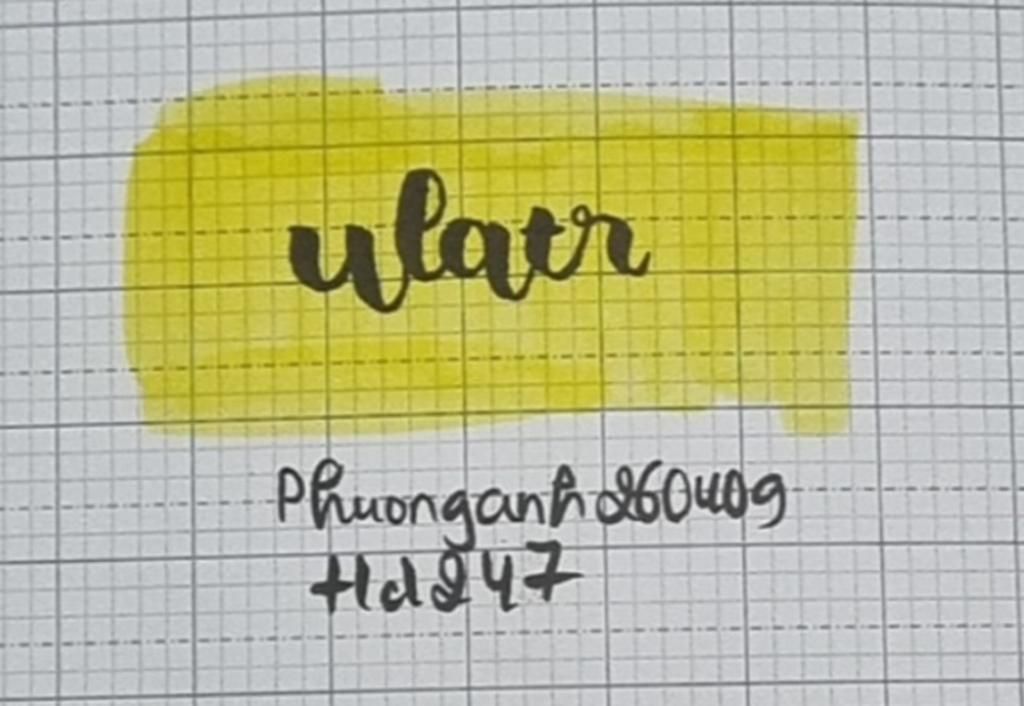 ulatr
Phuonganh260409
Hd247